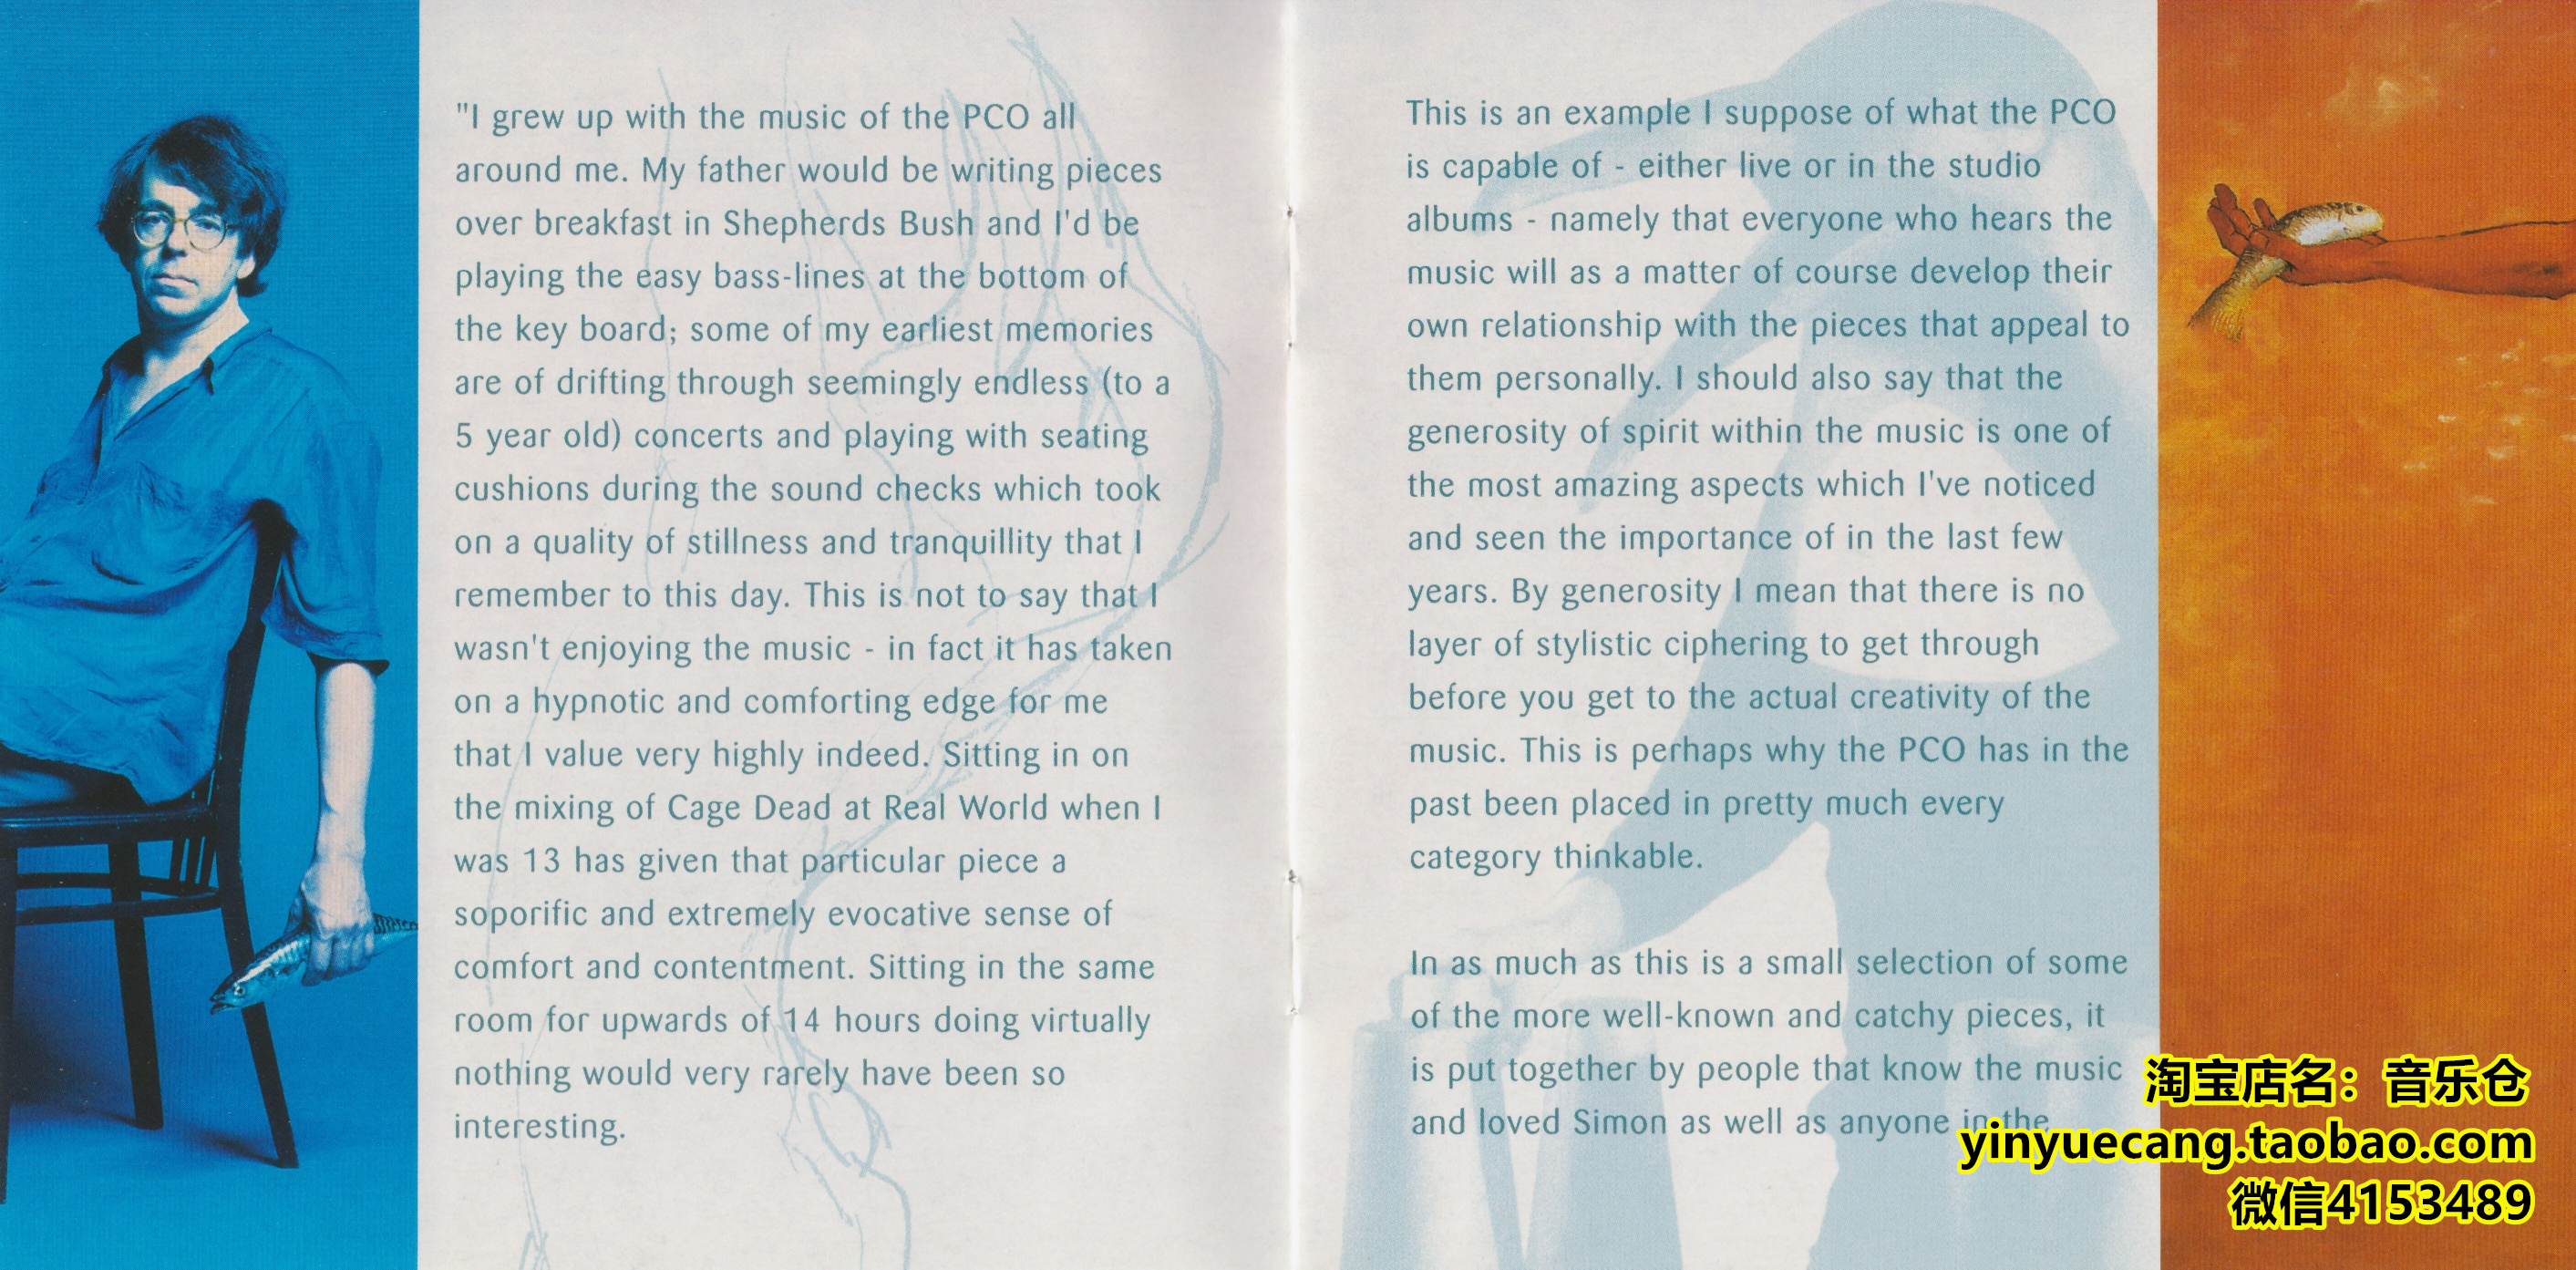 "I grew up with the music of the PCO all
around me. My father would be writing pieces
over breakfast in Shepherds Bush and I'd be
playing the easy bass-lines at the bottom of
the key board; some of my earliest memories
are of drifting through seemingly endless (to a
5 year old) concerts and playing with seating
cushions during the sound checks which took
on a quality of stillness and tranquillity that I
remember to this day. This is not to say that I
wasn't enjoying the music - in fact it has taken
on a hypnotic and comforting edge for me
that I value very highly indeed. Sitting in on
the mixing of Cage Dead at Real World when I
was 13 has given that particular piece a
soporific and extremely evocative sense of
comfort and contentment. Sitting in the same
room for upwards of 14 hours doing virtually
nothing would very rarely have been so
interesting.
This is an example I suppose of what the PCO
is capable of - either live or in the studio
albums - namely that everyone who hears the
music will as a matter of course develop their
own relationship with the pieces that appeal to
them personally. I should also say that the
generosity of spirit within the music is one of
the most amazing aspects which I've noticed
and seen the importance of in the last few
years. By generosity I mean that there is no
layer of stylistic ciphering to get through
before you get to the actual creativity of the
music. This is perhaps why the PCO has in the
past been placed in pretty much every
category thinkable.
In as much as this is a small selection of some
of the more well-known and catchy pieces, it
is put together by people that know the music
and loved Simon as well as anyone in the
淘宝店名：音乐仓
yinyuecang.taobao.com
微信4153489